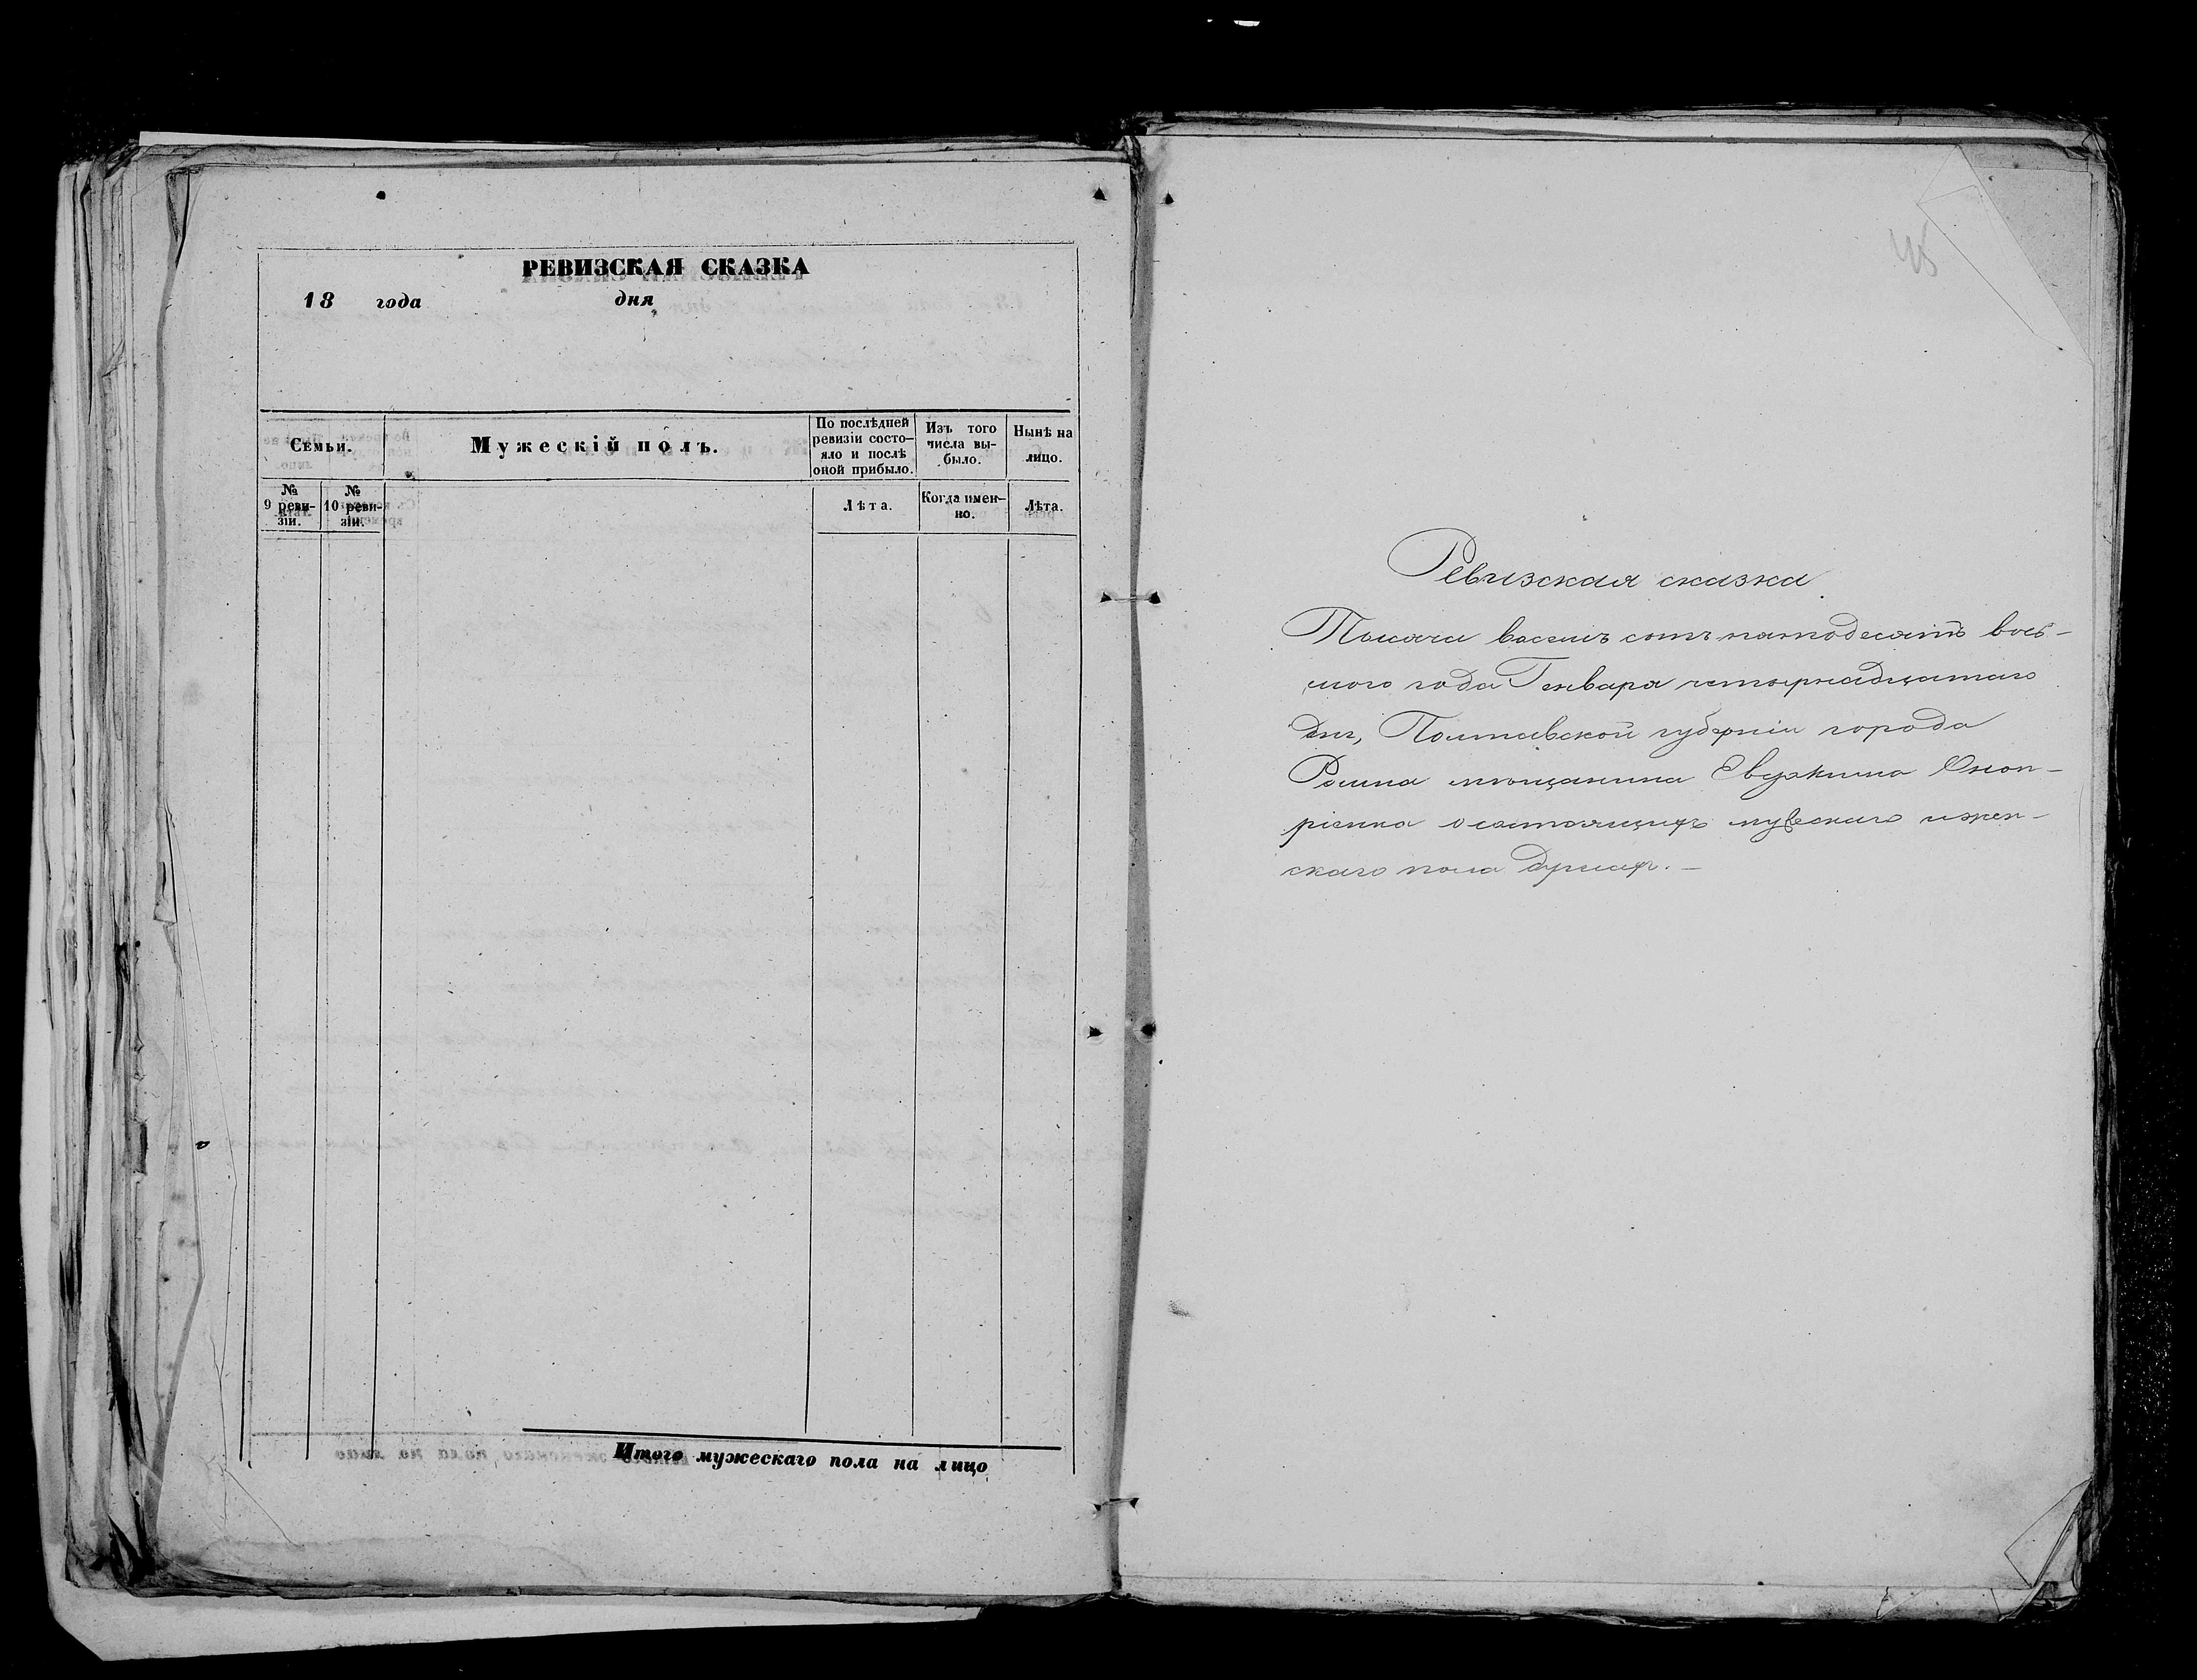 РЕВИЗСКАЯ СКАЗКА
18 года дня
Семьи.
Мужескій полъ.
По послѣдней
ревизіи состо-
яло и послѣ
оной прибыло.
Изъ того
числа вы-
было.
Нынѣ на
лицо.
№
9 реви-
зіи.
№
10 реви-
зіи.
Лѣта.
Когда имен-
но.
Лѣта.
Итого мужескаго пола на лицо
45
Ревизская сказка
Тысяча восемь сотъ пятодесятъ вось-
мого года Генваря четырнадцатаго
дня, Полтавской губерніи города
Ромна мѣщанина Евдокима Оноп-
ріенка о состоящихъ мужескаго и жен-
скаго пола душахъ. —